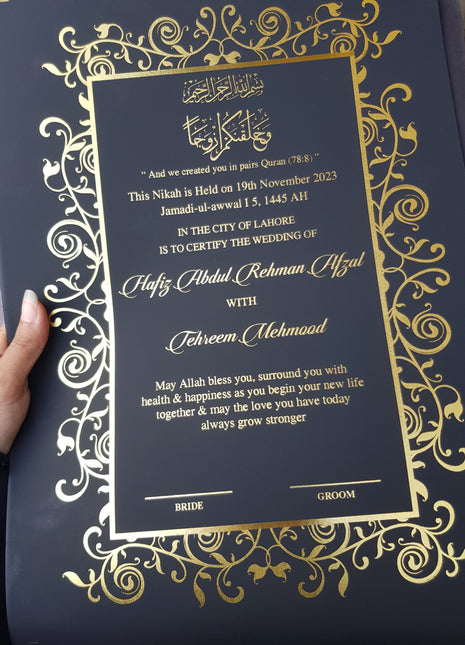 بسم الله الرحمن الرحيم
وخلقنكم ازوجا
“ And we created you in pairs Quran (78:8) ”
This Nikah is Held on 19th November 2023
Jamadi-ul-awwal I 5, 1445 AH
IN THE CITY OF LAHORE
IS TO CERTIFY THE WEDDING OF
Hafiz Abdul Rehman Afzal
WITH
Tehreem Mehmood
May Allah bless you, surround you with
health & happiness as you begin your new life
together & may the love you have today
always grow stronger
BRIDE
GROOM